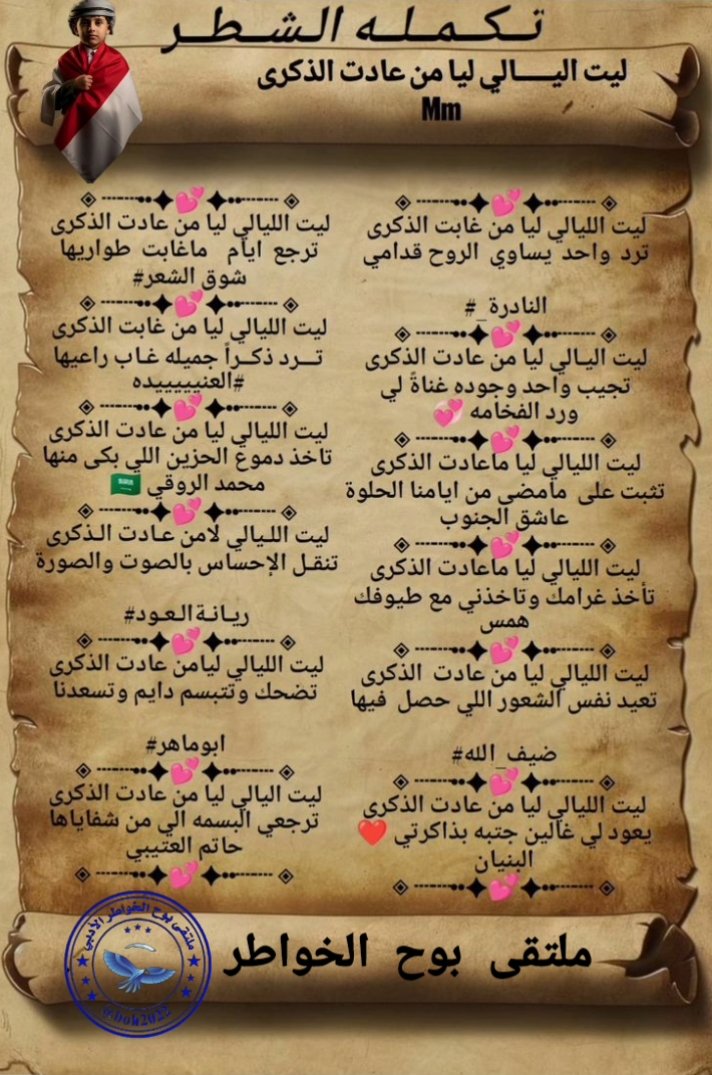 تكمله الشطر
ليت اليـــالي ليا من عادت الذكرى
Mm
ليت الليالي ليا من غابت الذكرى
ترد واحد يساوي الروح قدامي
النادرة_#
ليت اليالي ليا من عادت الذكرى
تجيب واحد وجوده غناةً لي
ورد الفخامه 💞
ليت الليالي ليا ماعادت الذكرى
تثبت على مامضى من ايامنا الحلوة
عاشق الجنوب
ليت الليالي ليا ماعادت الذكرى
تأخذ غرامك وتاخذني مع طيوفك
همس
ليت الليالي ليا من عادت الذكرى
تعيد نفس الشعور اللي حصل فيها
ضيف_الله#
ليت الليالي ليا من عادت الذكرى
يعود لي غالين جتبه بذاكرتي ❤️
البنيان
ليت الليالي ليا من عادت الذكرى
ترجع ايام ماغابت طواريها
شوق الشعر#
ليت الليالي ليا من غابت الذكرى
تــرد ذكـرأ جميله غـاب راعيها
#العنيييييده
ليت الليالي ليا من عادت الذكرى
تاخذ دموع الحزين اللي بكى منها
محمد الروقي 🇸🇦
ليت اللـيالي لامن عـادت الـذكرى
تنقـل الإحساس بالصوت والصورة
ريـانـة الـعـود#
ليت الليالي ليامن عادت الذكرى
تضحك وتتبسم دايم وتسعدنا
ابوماهر#
ليت اليالي ليا من عادت الذكرى
ترجعي البسمه الي من شفاياها
حاتم العتيبي
ملتقى بوح الخواطر
ملتقى بوح الخواطر الأدبي